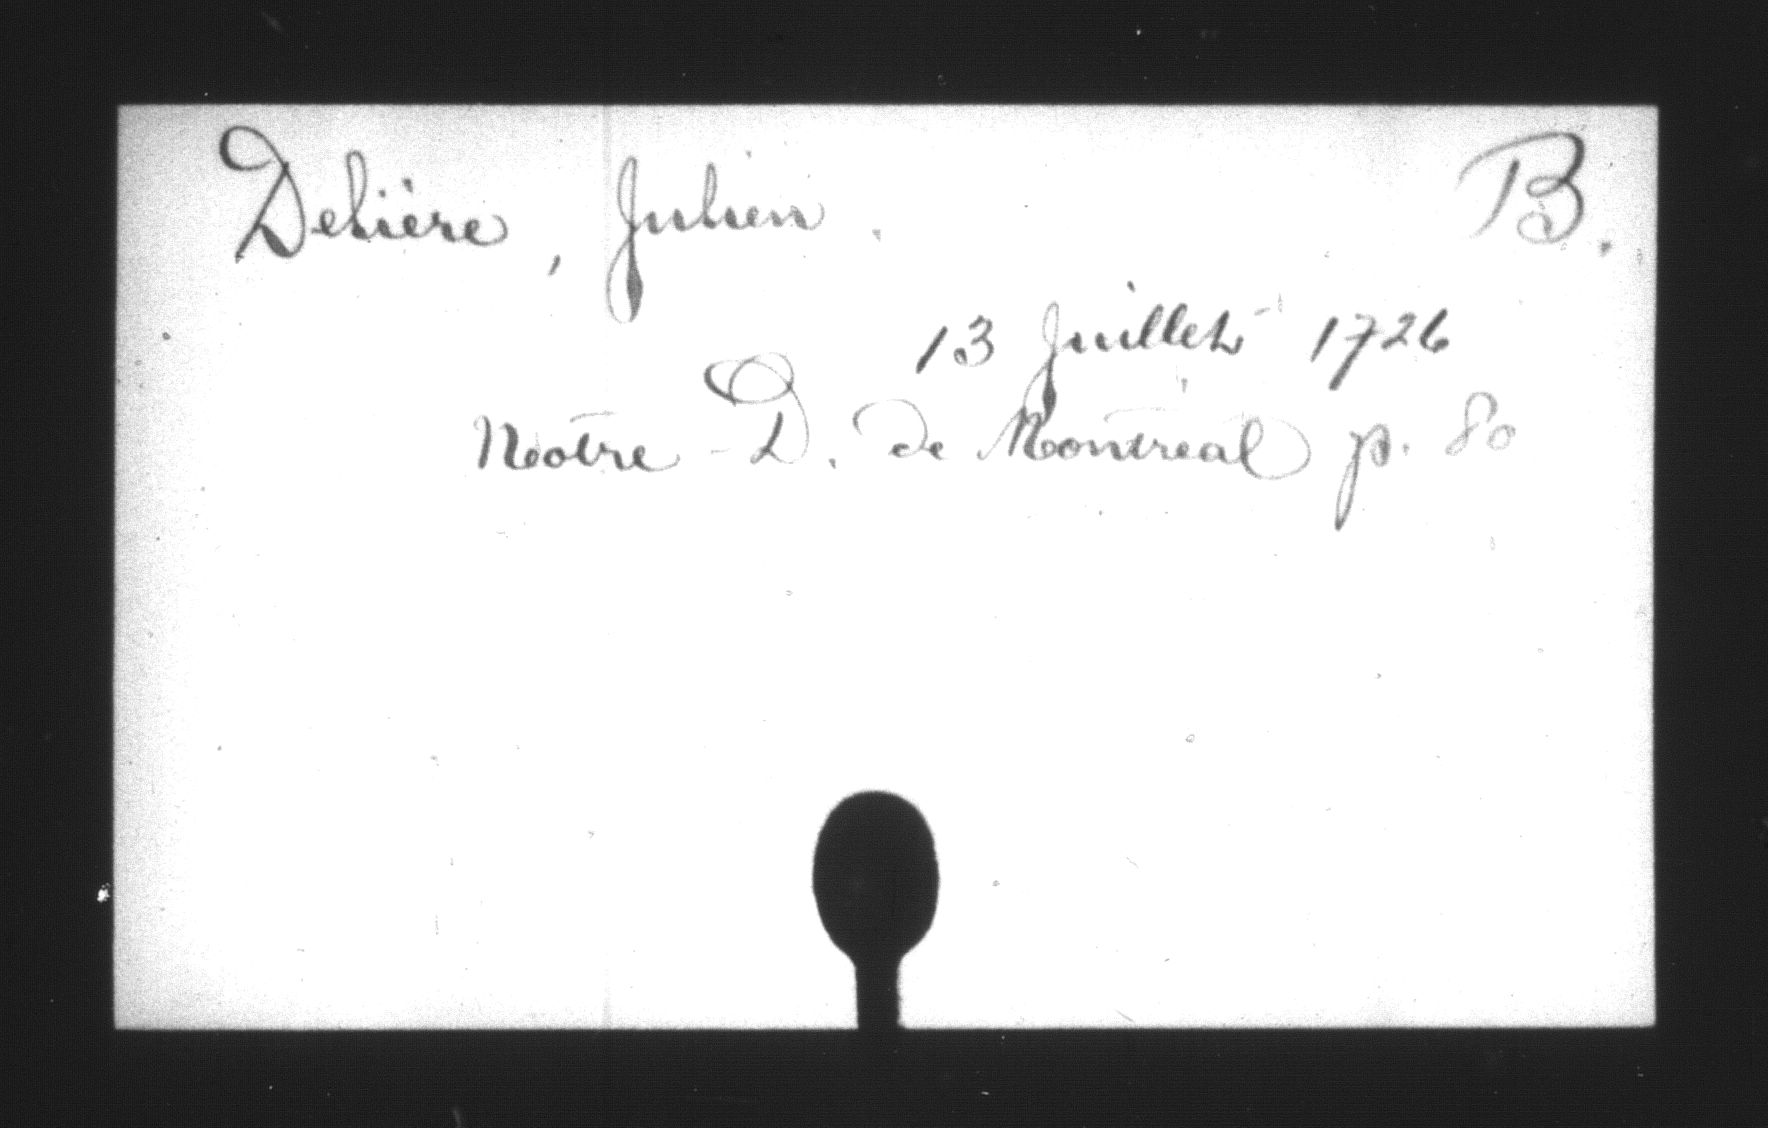 Delière, Julien. B.
13 Juillet 1726
Notre-D. de Montréal p. 80